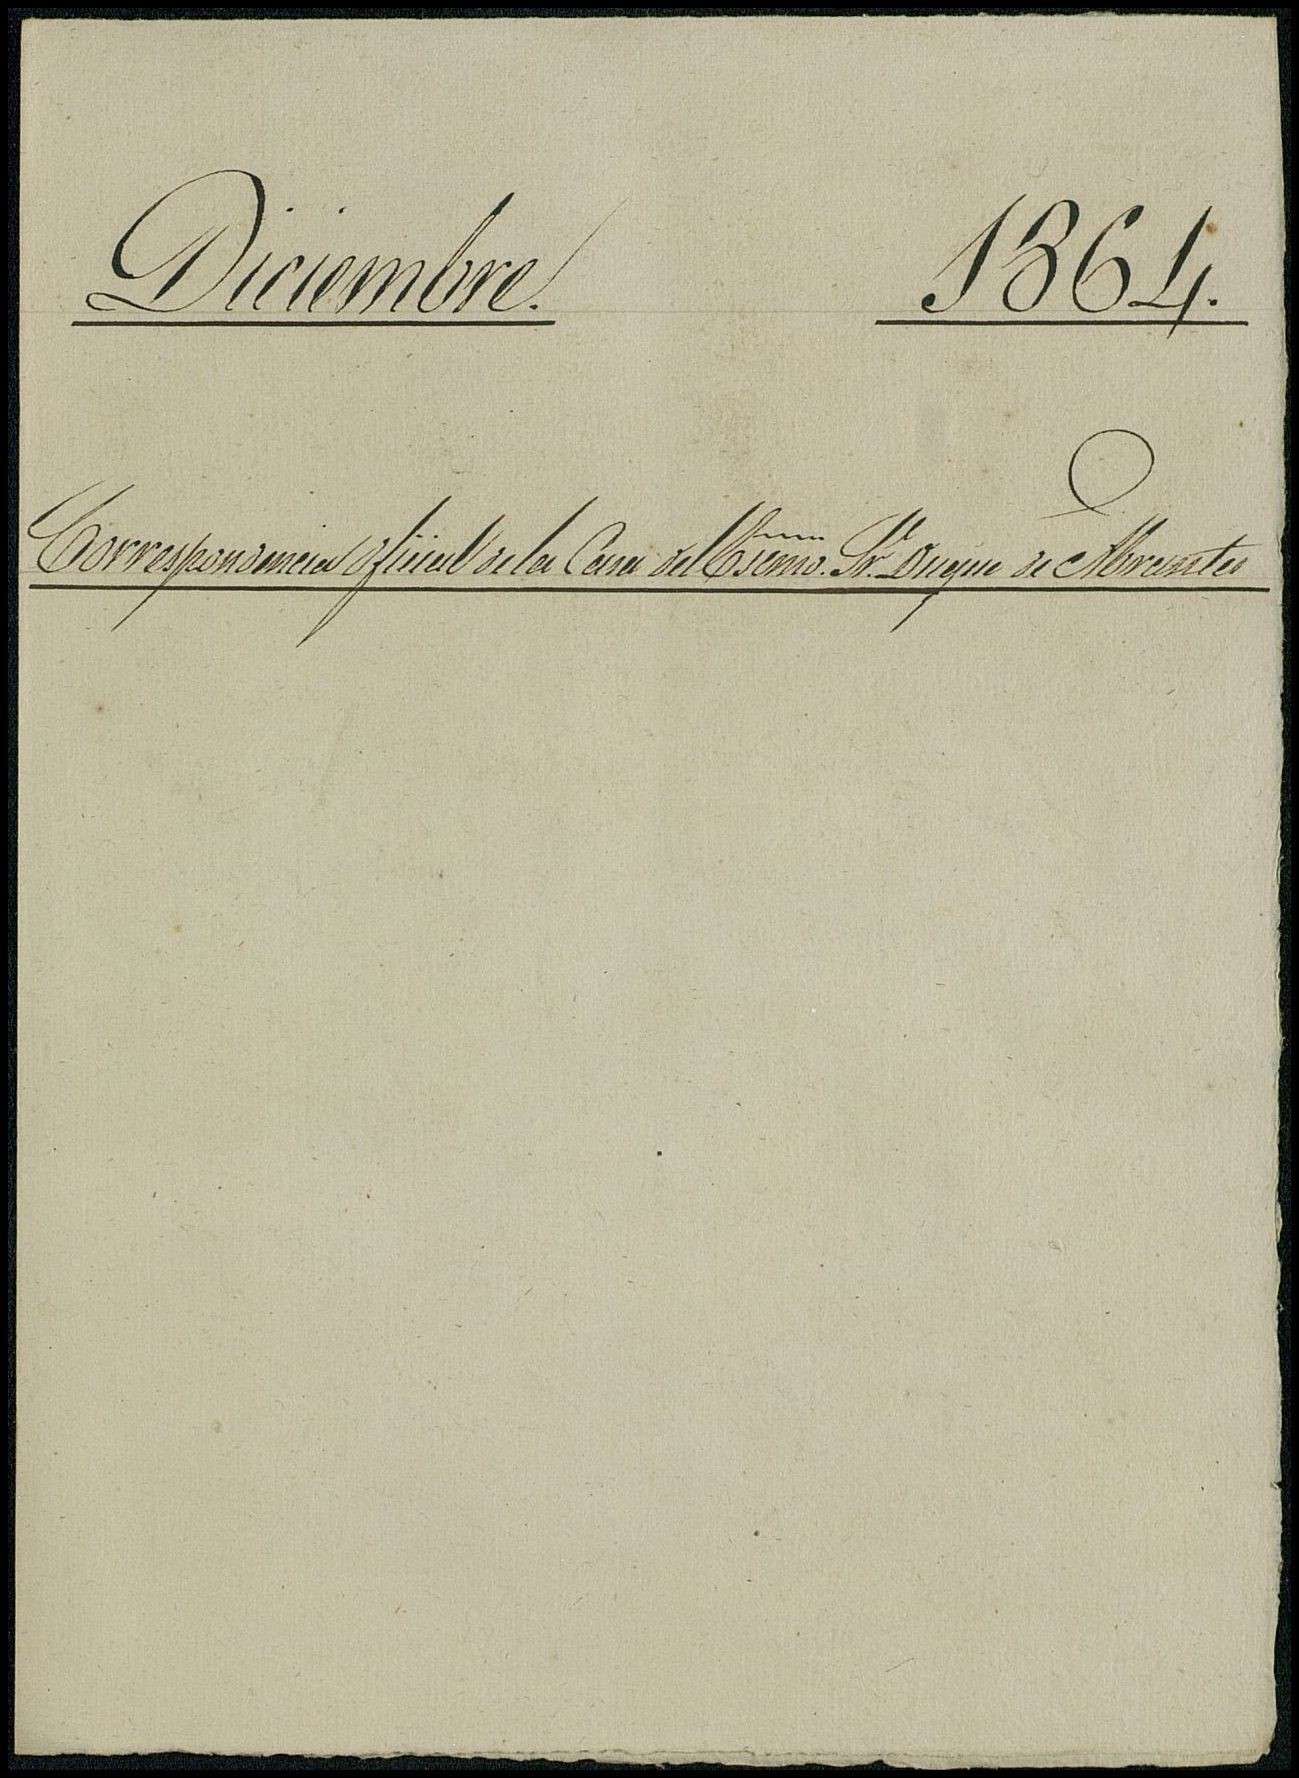 Diciembre. 1864.
Correspondencia oficial de la Casa del Escmo. Sr. Duque de Abrantes